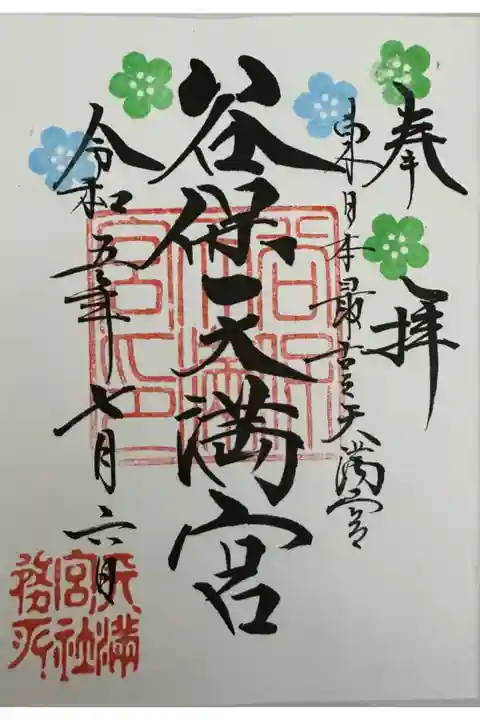 奉拝
東日本最古天満宮
谷保天満宮
令和五年七月六日
谷保天満宮印
天満宮社務所